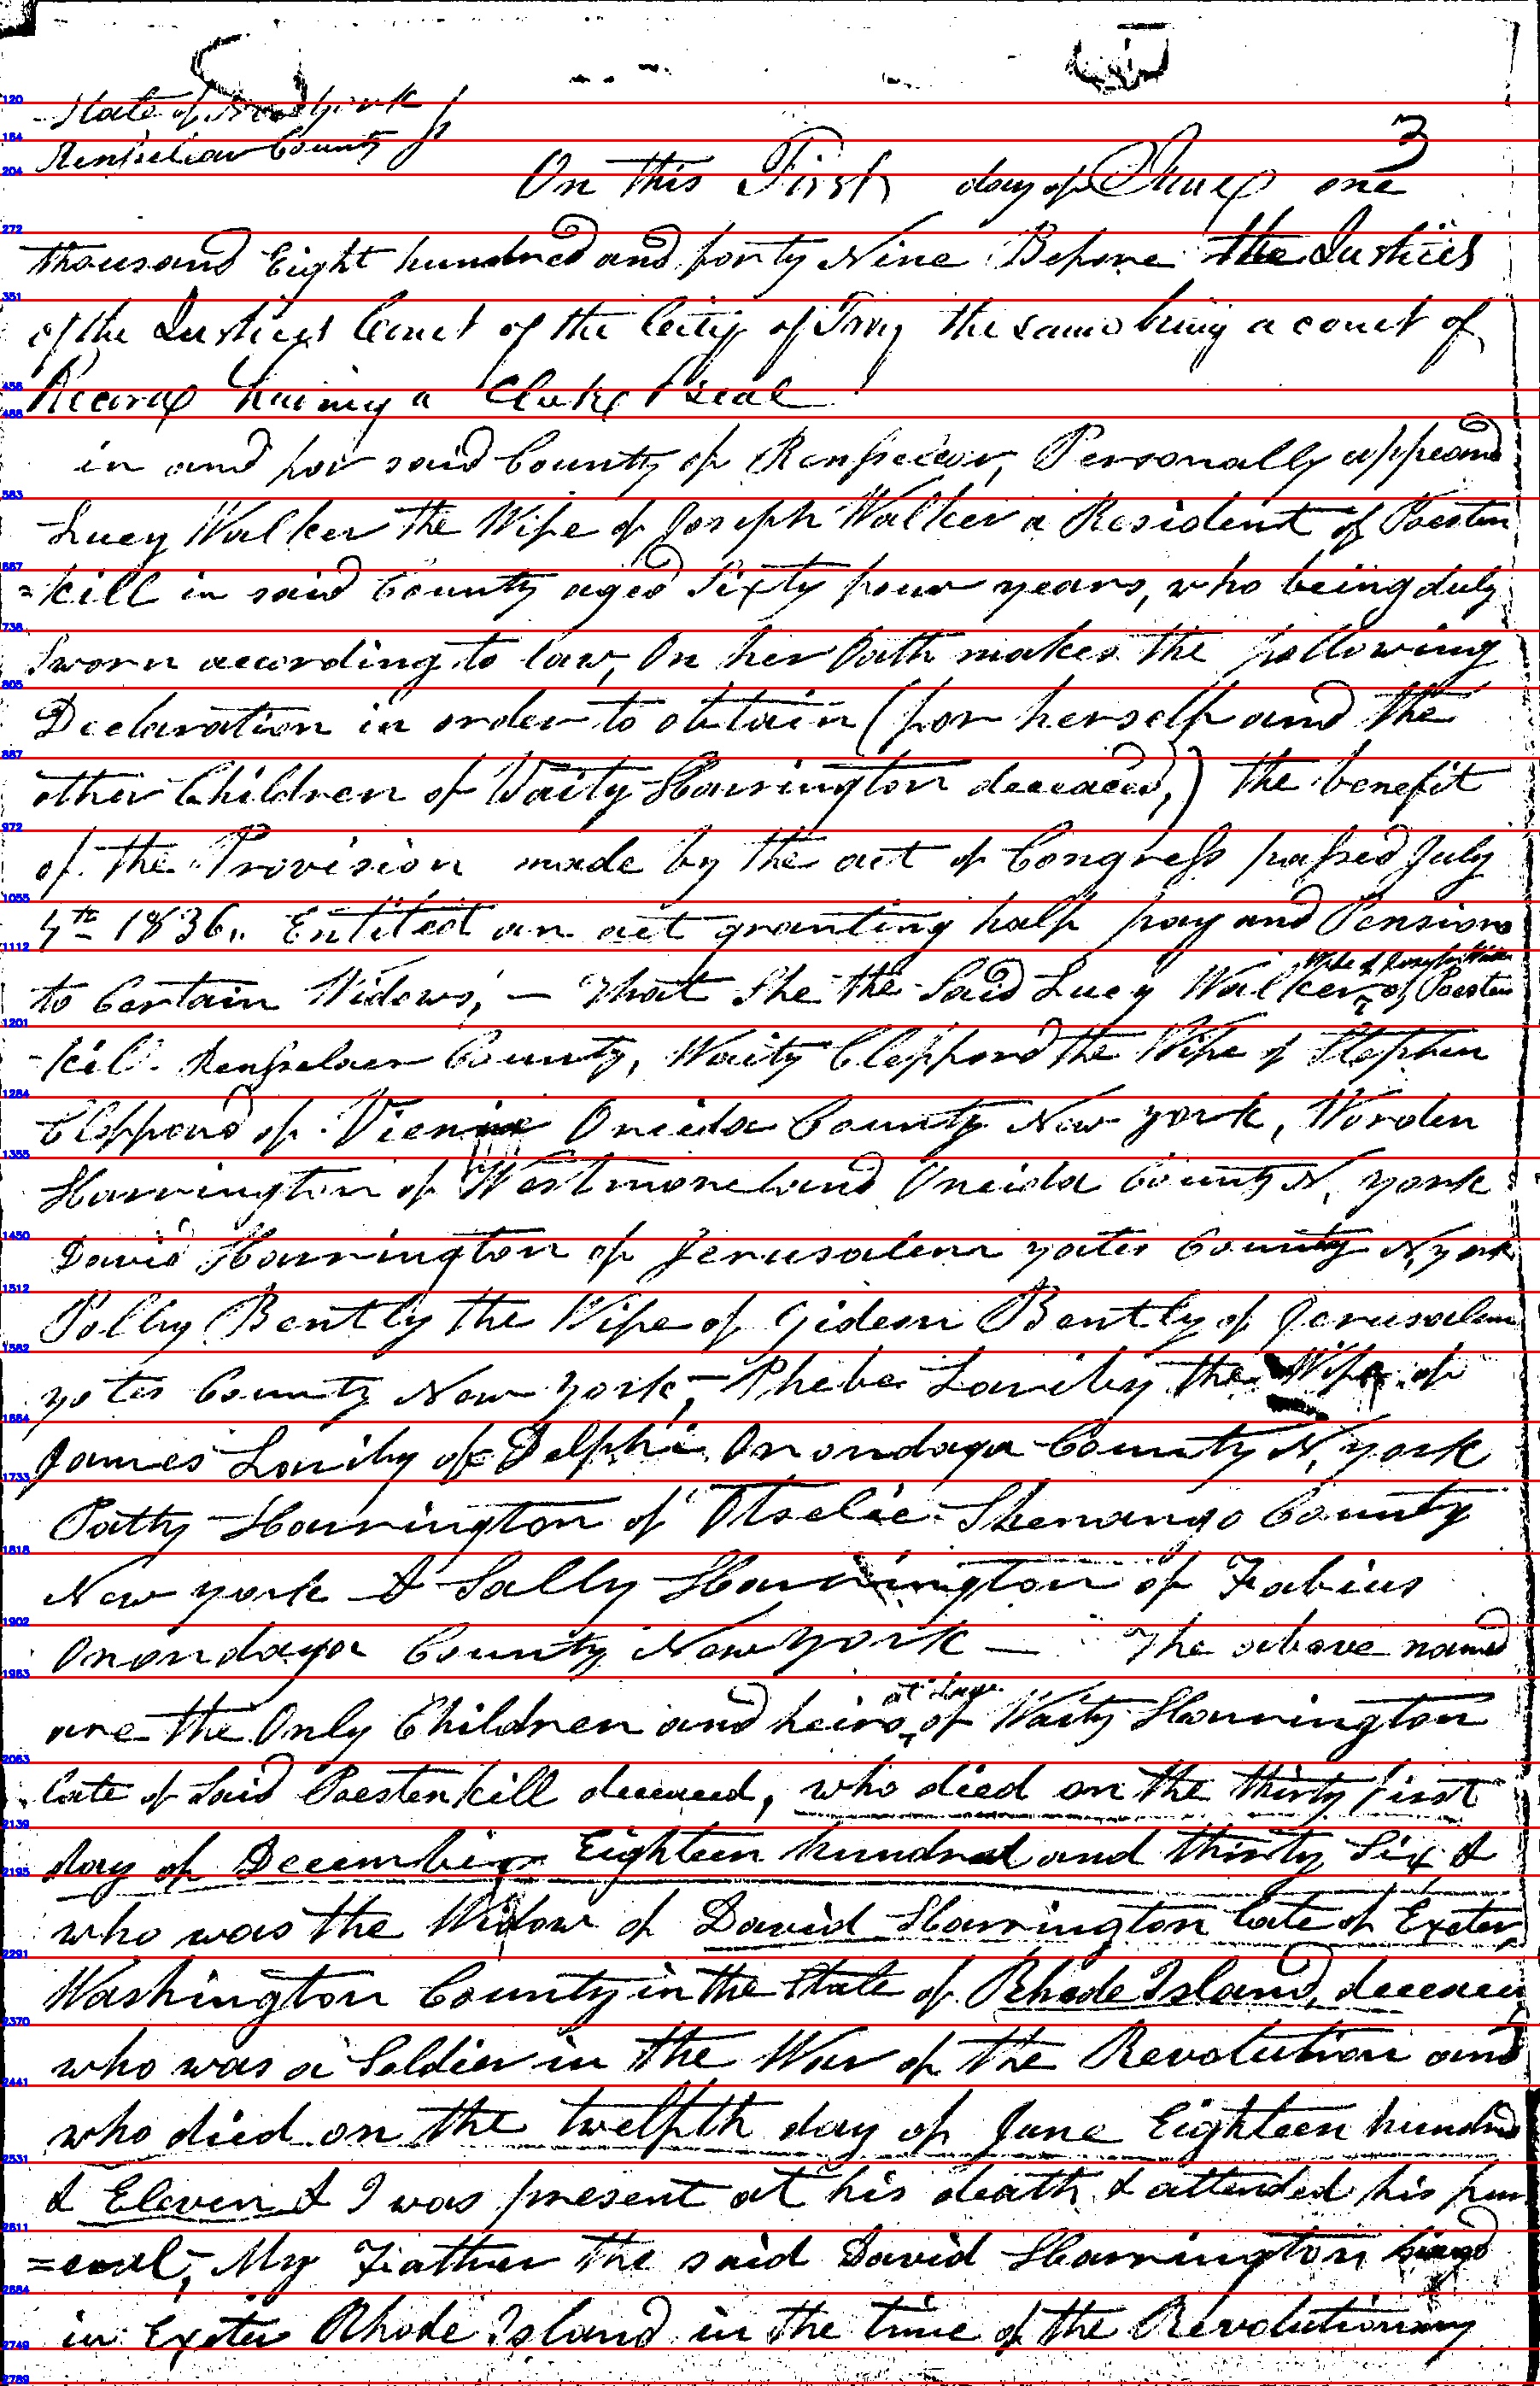 State of New York
Rensselaer County
3
On this First day of June one
thousand Eight hundred and forty Nine Before the Justices
of the Justices Court of the City of Troy the same being a court of
Record having a Clerk & seal
in and for said County of Rensselaer, Personally appeared
Lucy Walker the Wife of Joseph Walker a Resident of Poesten
=kill in said County aged Sixty four years, who being duly
Sworn according to law, On her Oath makes the following
Declaration in order to obtain (for herself and the
other Children of Waity Harrington deceaced,) the benefit
of the Provision made by the act of Congress passed July
4th 1836,, Entitled an act granting half pay and Pensions
Wife of Joseph Walker
to Certain Widows, — That She the Said Lucy Walker, of Poesten
-kill Rensselaer County, Waity Clepford the Wife of Stephen
Clepford of Vienna Oneida County New York, Worden
Harrington of Westmoreland Oneida County N, York
David Harrington of Jerusalem yates County N, York
Polly Bently the Wife of Gideon Bently of Jerusalem
yates County New York, — Phebe the Wife of
James of Delphi Onondaga County N, York
Patty Harrington of Otselic Shenango County
New york & Sally Harrington of Fabius
Onondaga County New York — The above named
are the Only Children and heirs of Waity Harrington
late of Said Poestenkill deceaced, who died on the thirty first
day of December Eighteen hundred and thirty Six &
who was the Widow of David Harrington late of Exeter,
Washington County in the State of Rhode Island, deceaced
who was a Soldier in the War of the Revolution and
who died on the twelfth day of June Eighteen hundred
& Eleven & I was present at his death & attended his fun
=eral, My Father the said David Harrington lived
in Exeter Rhode Island in the time of the Revolutionary